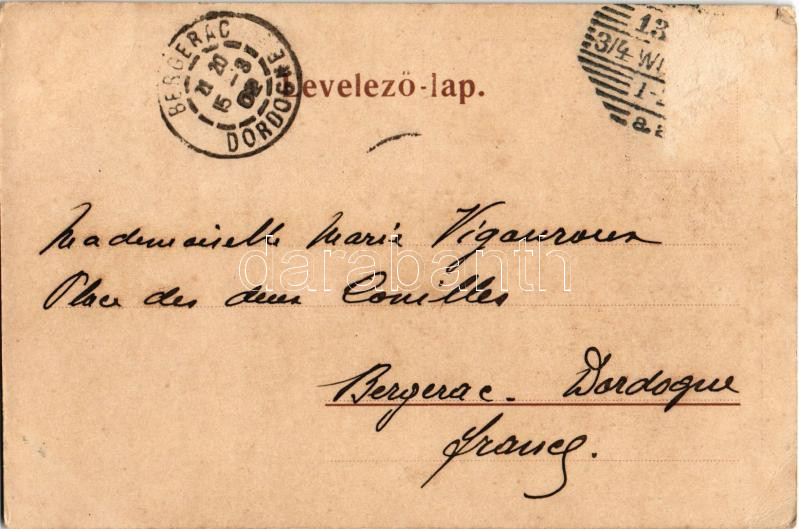 BERGERAC
21 20
15 -8
02
DORDOGNE
Levelező-lap.
13
3/4 WI
1-
a.
Mademoiselle Marie Vigouroux
Place des deux Conilles
Bergerac. Dordogne
France.
darabanth